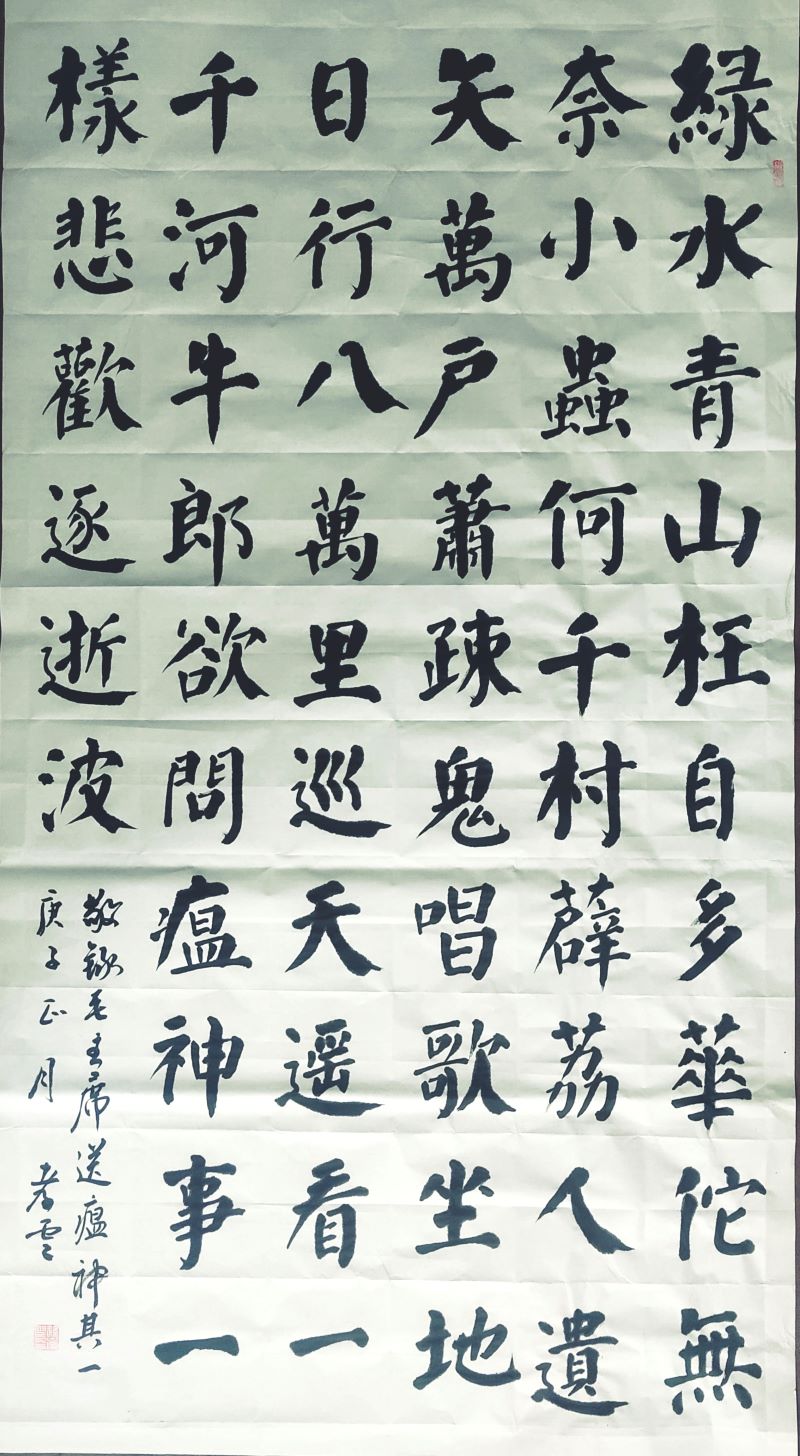 緑水青山枉自多華佗無
奈小蟲何千村薜荔人遺
矢萬戶蕭疎鬼唱歌坐地
日行八萬里巡天遥看一
千河牛郎欲問瘟神事一
樣悲歡逐逝波
敬錄毛主席送瘟神其一
庚子正月 老雲